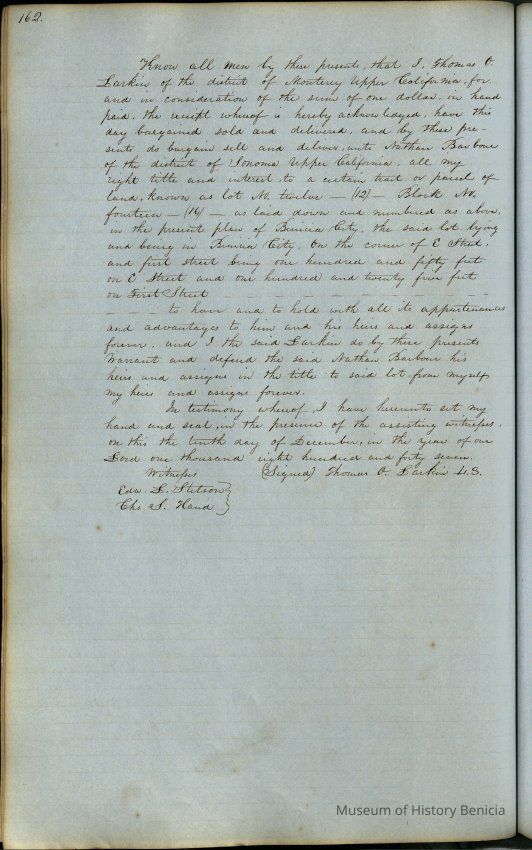 162.
Know all men by these presents, that I, Thomas O.
Larkin of the district of Monterey Upper California, for
and in consideration of the sum of one dollar in hand
paid, the receipt whereof is hereby acknowledged, have this
day bargained sold and delivered, and by these pre-
sents do bargain sell and deliver, unto Nathan Barbour
of the district of Sonoma Upper California, all my
right title and interest, to a certain tract or parcel of
land, known as lot No. twelve — (12) — Block No.
fourteen — (14) — as laid down and numbered as above,
in the present plan of Benicia City, the said lot lying
and being in Benicia City. On the corner of C Street,
and first Street being one hundred and fifty feet
on C Street and one hundred and twenty five feet
on First Street
to have and to hold with all its appurtenances
and advantages to him and his heirs and assigns
forever, and I the said Larkin do by these presents
Warrant and defend the said Nathan Barbour his
heirs and assigns in the title to said lot from myself,
my heirs and assigns forever.
In testimony whereof, I have hereunto set my
hand and seal, in the presence of the assisting witnesses,
on this the tenth day of December, in the year of our
Lord one thousand eight hundred and forty seven.
Witness (Signed) Thomas O. Larkin L.S.
Edw. L. Stetson
Chs S. Hand
Museum of History Benicia